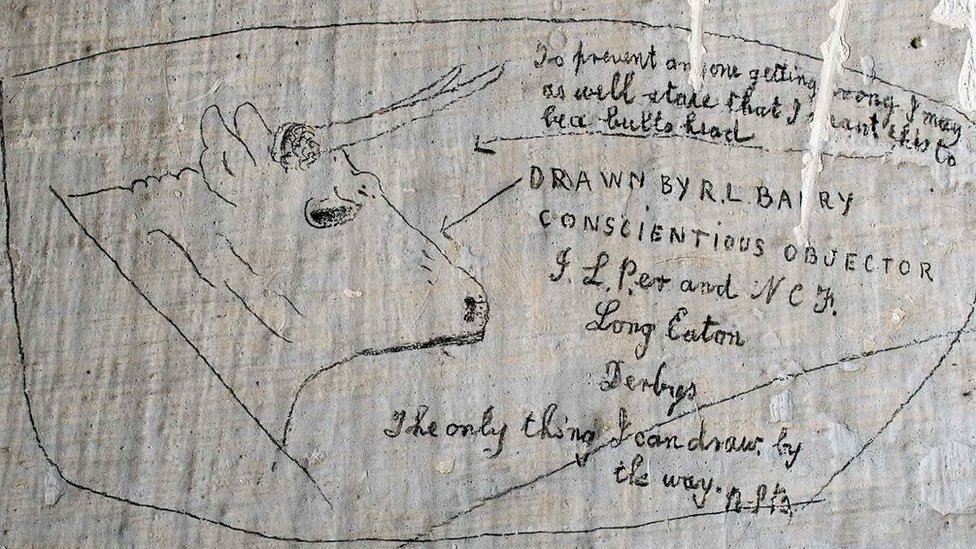 To prevent anyone getting wrong I may
as well state that I want this to
be a bulls head
DRAWN BY R.L BARRY
CONSCIENTIOUS OBJECTOR
I. L. P.er and N C F.
Long Eaton
Derbys
The only thing I can draw. by
the way.